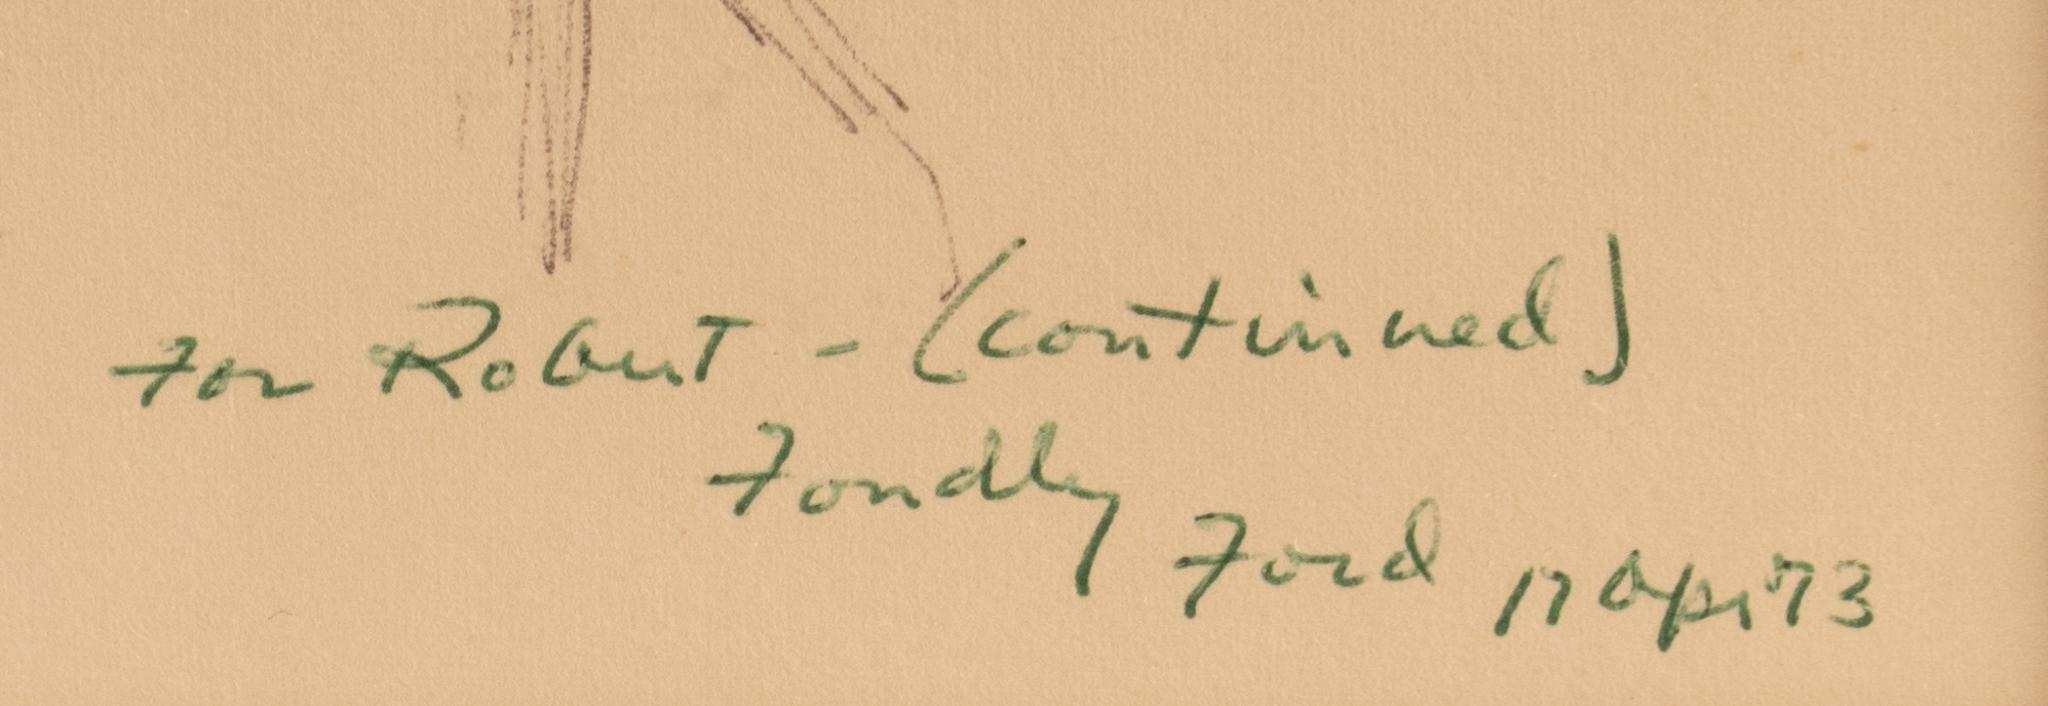 For Robert - (continued)
Fondly
Ford 17 Apr '73